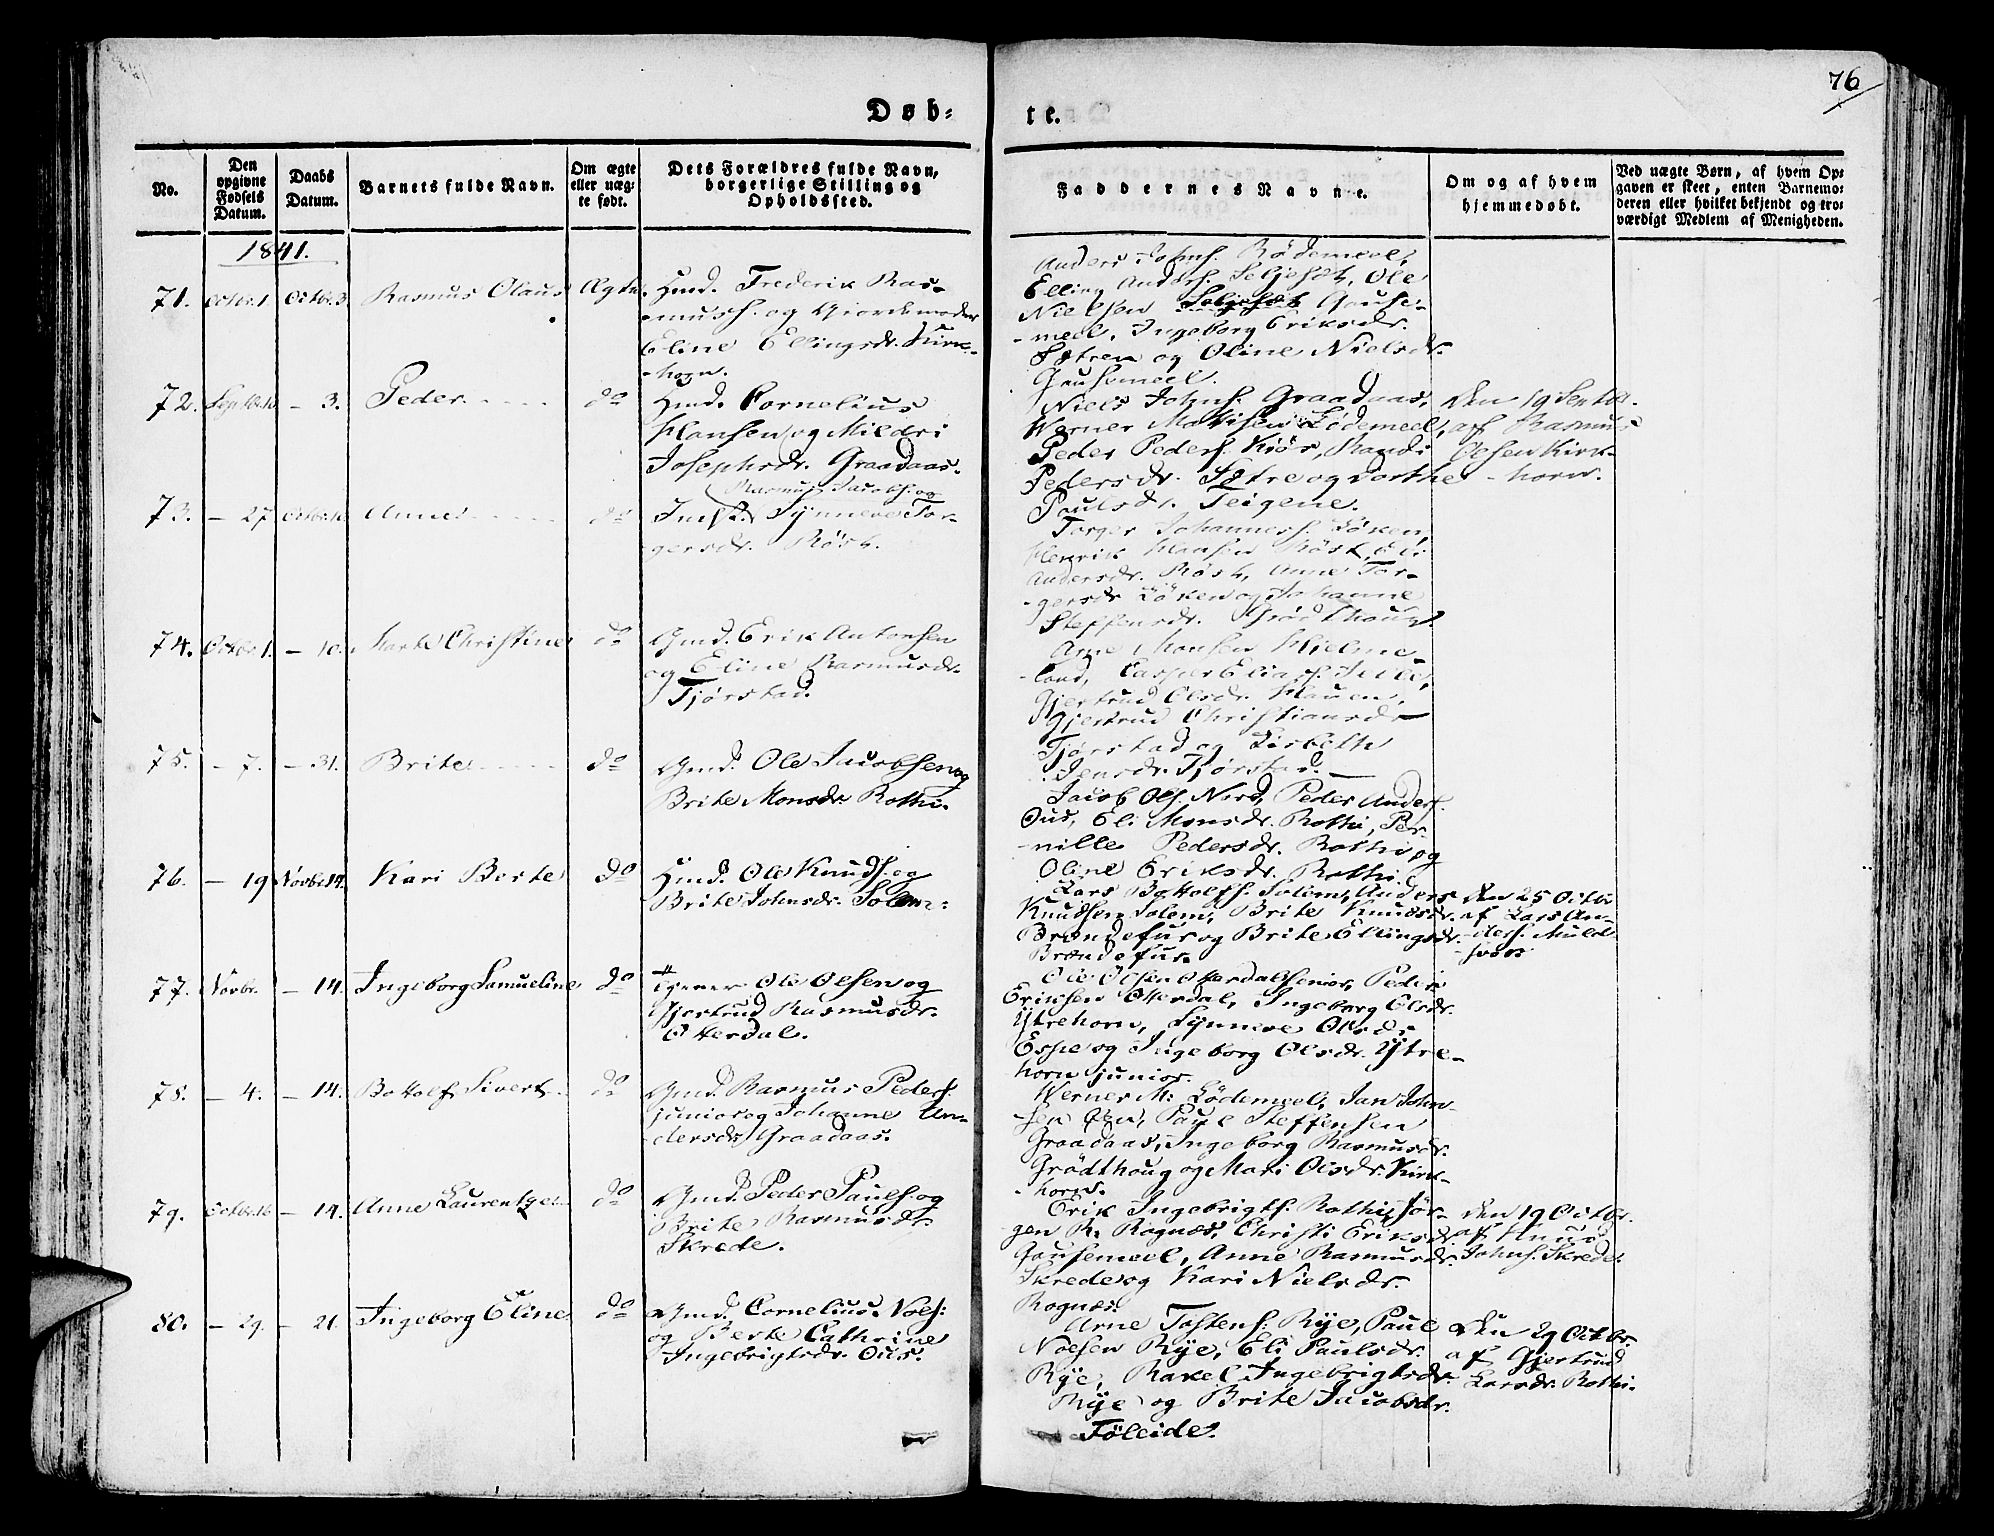 76
Døb-
te.
No.
Den opgivne Fødsels Datum.
Daabs Datum.
Barnets fulde Navn.
Om ægte eller uæg-te født.
Dets Forældres fulde Navn, borgerlige Stilling og Opholdssted.
Faddernes Navne.
Om og af hvem hjemmedøbt.
Ved uægte Børn, af hvem Op-
gaven er skeet, enten Barnemo-
deren eller hvilket bekjendt og tro-
værdigt Medlem af Menigheden.
1841.
71. Octbr. 1 Octbr. 3 Rasmus Olaus Ægte
Hmd. Frederik Ras-
musf. og Gjordemoder
Eline Ellingsdr. Kirk-
horn.
Anders Johnf. Rödemeel,
Elling Andersf. Seljeset, Ole
Nielsen Gause-
meel, Ingeborg Eriksdr.
Sætren og Oline Nielsdr.
Gausemeel.
72. - 3. Peder do
Hmd. Cornelius
Hansen og Mildri
Josephsdr. Graadaas.
Niels Johnf. Graadaas,
Werner Lödemeel,
Peder Pedersf. Kiös, Randi
Pedersdr. Sætre og Dorthe
Paulsdr. Teigene.
Den 19 Septbr.
af Rasmus
Olsen Kirk-
horn.
73. - 27 Anne do
Rasmus Jacobf. og
Synneve Tor-
gersdr. Röst.
Torger Johannesf. Löken,
Henrik Hansen Röst, Eli
Andersdr. Röst, Anne Tor-
gersdr. Löken og Johanne
Steffensdr. Grödthoug.
74. Octbr. 1. - 10. Marte Christine do
Gmd. Erik Antonsen
og Eline Rasmusdr.
Tjørstad.
Arne Monsen Hjelme-
land, Casper Eliasf.
Gjertrud Olsdr. Hauen,
Gjertrud Christiansdr.
Tjørstad og Lisbeth
Jensdr. Tjørstad.
75. - 7. - 31. Brite do
Gmd. Ole Jacobsen og
Brite Monsdr. Rothi.
Jacob Olf. Nord, Peder Andersf.
Ous, Eli Monsdr. Rothi, Per-
nille Pedersdr. Rothi og
Oline Eriksdr. Rothi.
76. - 19 Novbr. 14. Kari Berte do
Hmd. Ole Knudf. og
Brite Johnsdr. Solem.
Lars Bottolfs. Solem, Anders
Knudsen Solem, Brite Knudsdr.
Brændefur og Brite Ellingsdr.
Brændefur.
Den 25 Octbr.
af Lars An-
dersf. Muld-
svor.
77. Novbr. - 14. Ingeborg Samueline do
Tjener Ole Olsen og
Gjertrud Rasmusdr.
Otterdal.
Ole Olsen Otterdal senior, Peder
Eriksen Otterdal, Ingeborg Olsdr.
Ytrehorn, Synneve Olsdr.
Espe og Ingeborg Olsdr. Ytre-
horn junior.
78. - 4. - 14. Bottolf Sivert do
Gmd. Rasmus Pedersf.
junior og Johanne An-
dersdr. Graadaas.
Werner M. Lödemeel, Jan John-
sen Paul Steffensen
Graadaas, Ingeborg Rasmusdr.
Grödthoug og Mari Olsdr. Kirk-
horn.
79. Octbr. 16 - 14. Anne Laurentze do
Gmd. Peder Paulf. og
Brite Rasmusdr.
Skrede.
Erik Ingebrigtf. Rothi, Jör-
gen R. Rognæs, Christi Eriksdr.
Gausemeel, Anne Rasmusdr.
Skrede og Kari Nielsdr.
Rognæs.
Den 19 Octbr.
af Knud
Johnf. Skrede.
80. - 29. - 21. Ingeborg Eline do
Gmd. Cornelius Noesf.
og Berte Cathrine
Ingebrigtsdr. Ous.
Arne Tostenf. Rye, Paul
Noesen Rye, Eli Paulsdr.
Rye, Rakel Ingebrigtsdr.
Rye og Brite Jacobsdr.
Töleide.
Den 29 Octbr.
af Gjertrud
Larsdr. Rothi.